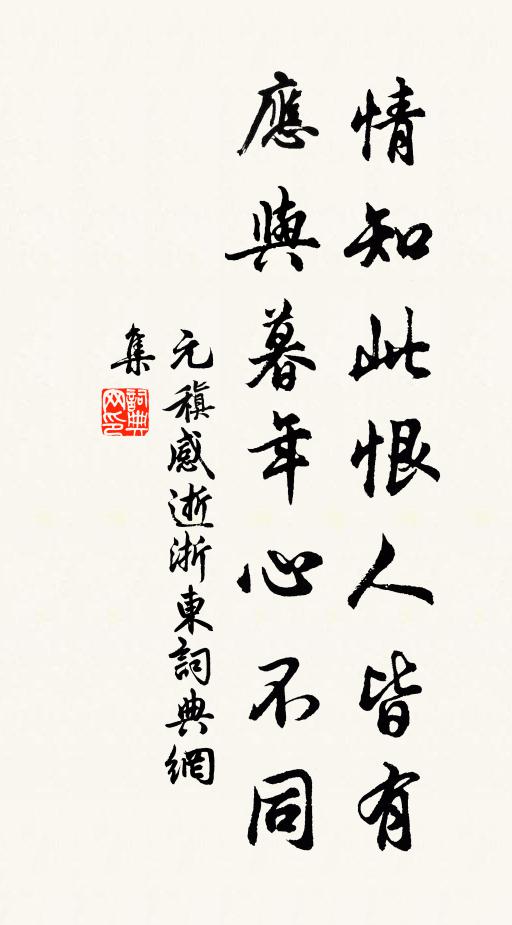 情知此恨人皆有
應與暮年心不同
元稹感逝浙東詞典網
集
詞典網印